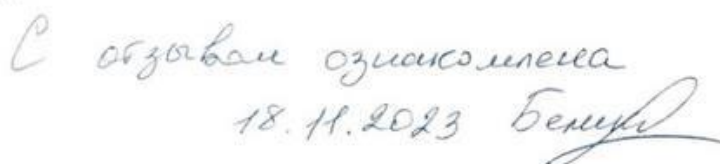 С отзывом ознакомлена
18.11.2023